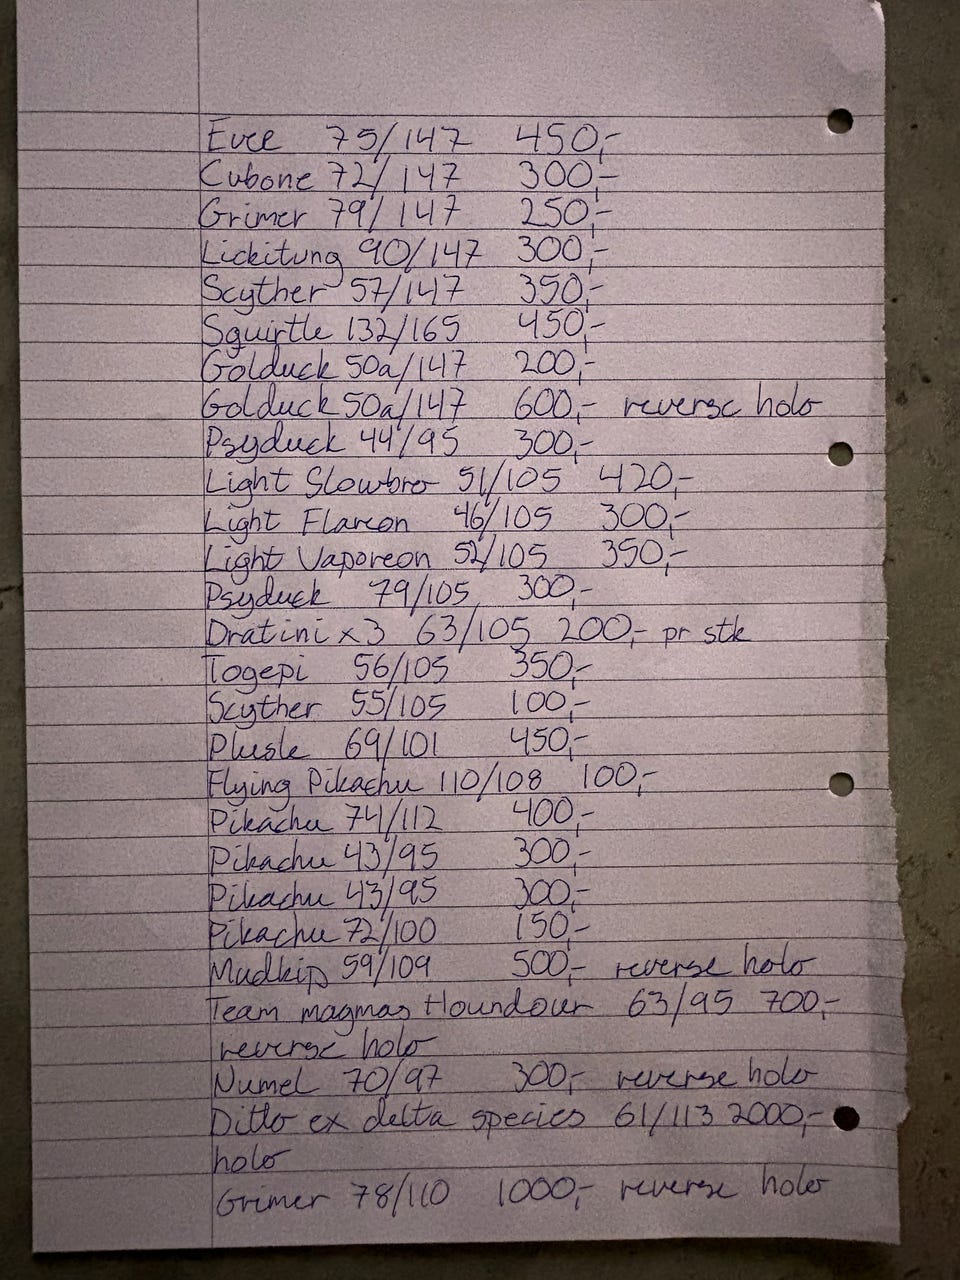 Evee 75/147 450,-
Cubone 72/147 300,-
Grimer 79/147 250,-
Lickitung 90/147 300,-
Scyther 57/147 350,-
Squirtle 132/165 450,-
Golduck 50a/147 200,-
Golduck 50a/147 600,- reverse holo
Psyduck 44/95 300,-
Light Slowbro 51/105 420,-
Light Flareon 46/105 300,-
Light Vaporeon 52/105 350,-
Psyduck 79/105 300,-
Dratini x3 63/105 200,- pr stk
Togepi 56/105 350,-
Scyther 55/105 100,-
Plusle 69/101 450,-
Flying Pikachu 110/108 100,-
Pikachu 74/112 400,-
Pikachu 43/95 300,-
Pikachu 43/95 300,-
Pikachu 72/100 150,-
Mudkip 59/109 500,- reverse holo
Team magmas Houndour 63/95 700,-
reverse holo
Numel 70/97 300,- reverse holo
Ditto ex delta species 61/113 2000,-
holo
Grimer 78/110 1000,- reverse holo